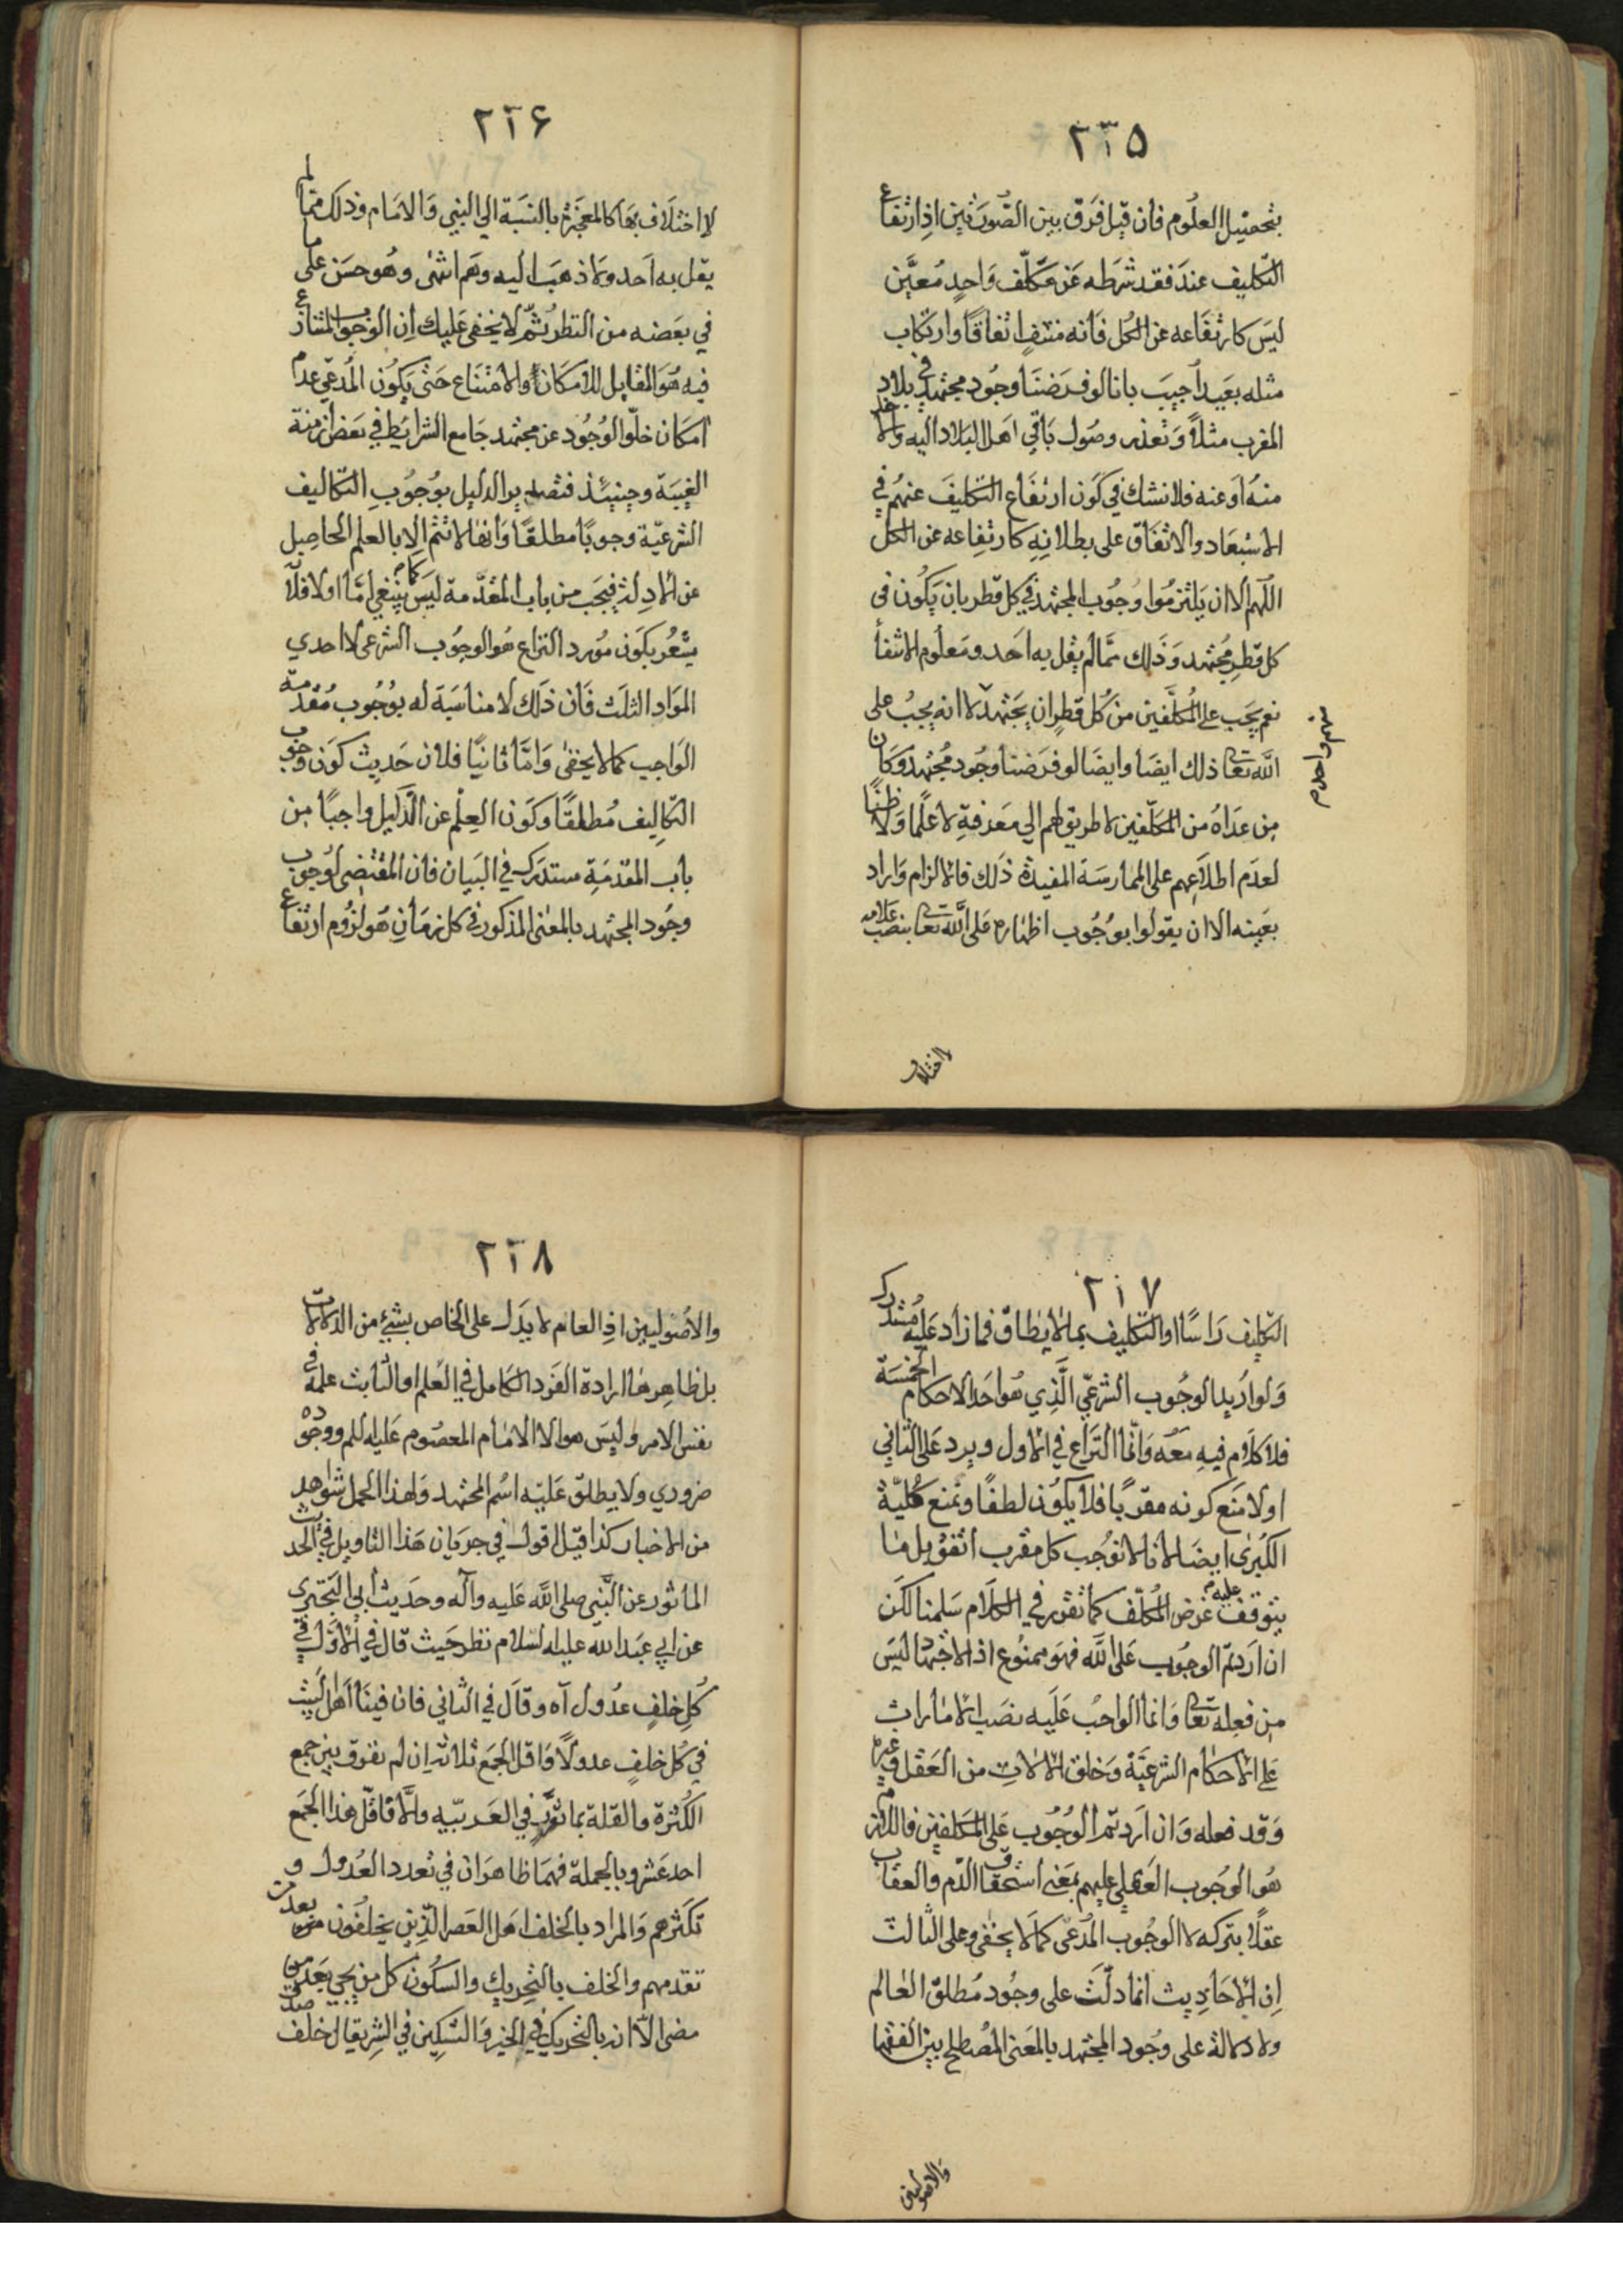 ٢١٥
بتحصيل العلوم فان قيل فرق بين الصورتين اذ ارتفاع
التكليف عند فقد شرطه عن مكلّف واحد معيّن
ليس كارتفاعه عن الكل فانه منتفٍ اتفاقا وارتكاب
مثله بعيد اجيب بانا لو فرضنا وجود مجتهد في بلاد
المغرب مثلا وتعذر وصول باقي اهل البلاد اليه والاخذ
منه او عنه فلا نشك في كون ارتفاع التكليف عنهم في
الاستبعاد والاتفاق على بطلانه كارتفاعه عن الكل
اللهم الا ان يلتزموا وجوب المجتهد في كل قطر بان يكون في
كل قطر مجتهد وذلك مما لم يقل به احد ومعلوم الانتفا
نعم يجب على المكلفين من كل قطر ان يجتهد لا انه يجب على
منهم واحد م
الله تعا ذلك ايضا وايضا لو فرضنا وجود مجتهد وكان
من عداه من المكلّفين لا طريق لهم الى معرفة لا علما ولا ظنّا
لعدم اطلاعهم على الممارسة المفيدة ذلك فالالزام واراد
بعينه الا ان يقولوا بوجوب اظهاره على الله تعا بنصب علامه
لا اختلاف
٢١۶
لا اختلاف بها كالمعجزة بالنسبة الى النبي والامام وذلك مما لم
يقل به احد ولا ذهب اليه وهم انتهى وهو حسن على ما
في بعضه من النظر ثم لا يخفى عليك ان الوجوب المتنازع
فيه هو المقابل للامكان والامتناع حتى يكون المدعي عدم
امكان خلو الوجود عن مجتهد جامع الشرايط في بعض ازمنة
الغيبة وحينئذ فتصدير الدليل بوجوب التكاليف
الشرعيّة وجوبا مطلقا وانها لا تتم الا بالعلم الحاصل
عن الادلة فيجب من باب المقدّمة ليس كما ينبغي امّا اولا فلانّه
يشعر بكون مورد النزاع هو الوجوب الشرعي لا احدي
المواد الثلث فان ذلك لا مناسبة له بوجوب مقدمة
الواجب كما لا يخفى وامّا ثانيا فلان حديث كون وجوب
التكاليف مطلقا وكون العلم عن الدليل واجبا من
باب المقدمة مستدرك في البيان فان المقتضى لوجوب
وجود المجتهد بالمعنى المذكور في كل زمان هو لزوم ارتفاع
٢١٧
التكليف راسا او التكليف بما لا يطاق فما زاد عليه مستدرك
ولو اريد الوجوب الشرعي الذي هو احد الاحكام الخمسة
فلا كلام فيه معه وانّما النزاع في الاول ويرد على الثاني
اولا منع كونه مقرّبا فلا يكون لطفا ونمنع كليّة
الكبرى ايضا لانا لا نوجب كل مقرب اتفق بل ما
يتوقف عليه غرض المكلّف كما تقرر في الكلام سلمنا لكن
ان اردتم الوجوب على الله فهو ممنوع اذ الاجتهاد ليس
من فعله تعا وانما الواجب عليه نصب الامارات
على الاحكام الشرعيّة وخلق الالات من العقل وغيره
وقد فعله وان اردتم الوجوب على المكلفين فاللازم
هو الوجوب العقلي عليهم بمعنى استحقاق الذم والعقاب
عقلا بتركه لا الوجوب المدعى كما لا يخفى وعلى الثالث
ان الاحاديث انما دلّت على وجود مطلق العالم
ولا دلالة على وجود المجتهد بالمعنى المصطلح بين الفقها
والاصوليين
٢١٨
والاصوليين اذ العام لا يدل على الخاص بشيء من الدلالات
بل ظاهرها ارادة الفرد الكامل في العلم او الثابت علمه في
نفس الامر وليس هو الا الامام المعصوم عليه السلم ووجوده
ضروري ولا يطلق عليه اسم المجتهد ولهذا الحمل شواهد
من الاخبار كذا قيل اقول في جريان هذا التاويل في الحديث
الماثور عن النبي صلى الله عليه وآله وحديث ابي البختري
عن ابي عبد الله عليه السلام نظر حيث قال في الاول في
كل خلف عدول آه وقال في الثاني فان فينا اهل البيت
في كل خلف عدولا واقل الجمع ثلاثة ان لم نفرق بين جمع
الكثرة والقلة بما تقرّر في العربيّة والّا فاقلّ هذا الجمع
احد عشر وبالجملة فهما ظاهران في تعدد العدول و
تكثرهم والمراد بالخلف اهل العصر الذين يخلفون بعد من
تقدمهم والخلف بالتحريك والسكون كل من يجي بعد من
مضى الّا انه بالتحريك في الخير والتسكين في الشر يقال خلف صدق